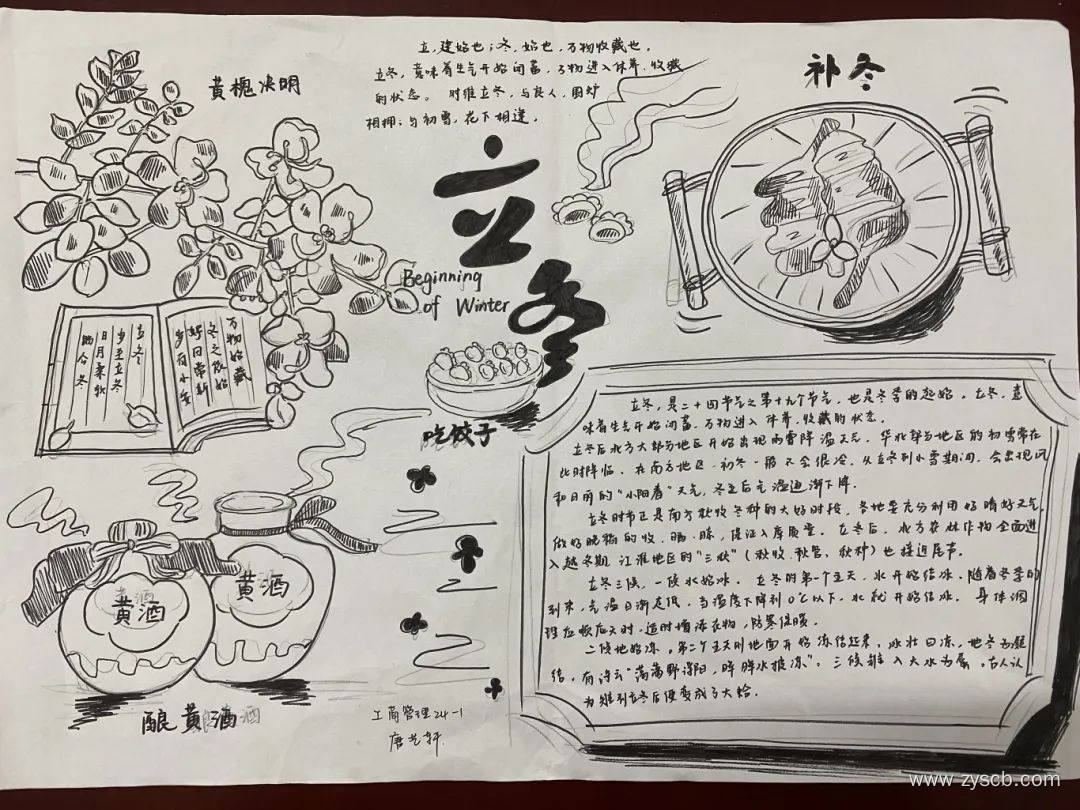 黄槐决明
立,建始也;冬,始也,万物收藏也。
立冬,意味着生气开始闭蓄,万物进入休养、收藏
的状态。 时维立冬,与良人,围炉
相拥;与初雪,花下相逢。
补冬
立冬
Beginning
of Winter
万物始藏
冬之伊始
好日常新
岁有小
立冬
岁至立冬
日月
冬
吃饺子
黄酒
黄酒
酿黄酒
工商管理24-1
唐艺轩
立冬,是二十四节气之第十九个节气,也是冬季的起始。立冬,意
味着生气开始闭蓄,万物进入休养、收藏的状态。
立冬后北方大部分地区开始出现雨雪降温天气,华北部分地区的初雪常在
此时降临。在南方地区,初冬一般不会很冷,从立冬到小雪期间,会出现风
和日丽的"小阳春"天气,冬至后气温逐渐下降。
立冬时节正是南方秋收冬种的大好时段,各地要充分利用好晴好天气,
做好晚稻的收、晒、晾,保证入库质量。立冬后,北方农林作物全面进
入越冬期,江淮地区的"三秋"(秋收、秋管、秋种)也接近尾声。
立冬三候,一候水始冰。立冬的第一个五天,水开始结冰。随着冬季的
到来,气温日渐走低,当温度下降到0℃以下,水就开始结冰。身体调
理应顺应天时,适时增添衣物,防寒保暖。
二候地始冻。第二个五天则地面开始冻结起来,冰壮曰冻,地冬为凝
结,有诗云"荡荡野泽阳,晔晔水推冻"。三候雉入大水为蜃。古人认
为雉到立冬后便变成了大蛤。
www.zyscb.com